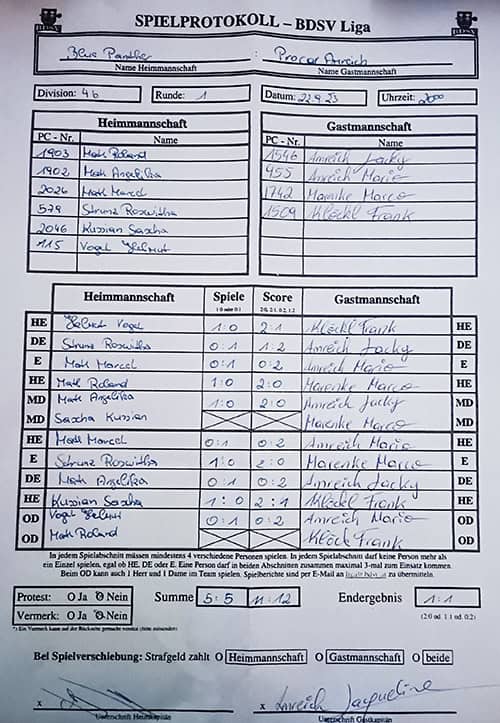 SPIELPROTOKOLL – BDSV Liga
Blue Panther : Procar Anreich
Name Heimmannschaft Name Gastmannschaft
Division: 4b Runde: 1 Datum: 22.9.23 Uhrzeit: 2000
Heimmannschaft Gastmannschaft
PC - Nr. Name PC - Nr. Name
1903 Math Roland 1546 Anreich Jacky
1902 Math Angelika 955 Anreich Mario
2026 Math Marcel 1742 Marenke Marco
579 Strunz Roswitha 1509 Klöckl Frank
2046 Kussian Sascha
115 Vogel Helmut
Heimmannschaft Spiele Score Gastmannschaft
1:0 oder 0:1 2:0, 2:1, 0:2, 1:2
HE Helmut Vogel 1:0 2:1 Klöckl Frank HE
DE Strunz Roswitha 0:1 1:2 Anreich Jacky DE
E Math Marcel 0:1 0:2 Anreich Mario E
HE Math Roland 1:0 2:0 Marenke Marco HE
MD Math Angelika 1:0 2:0 Anreich Jacky MD
MD Sascha Kussian Marenke Marco MD
HE Math Marcel 0:1 0:2 Anreich Mario HE
E Strunz Roswitha 1:0 2:0 Marenke Marco E
DE Math Angelika 0:1 0:2 Anreich Jacky DE
HE Kussian Sascha 1:0 2:1 Klöckl Frank HE
OD Vogel Helmut 0:1 0:2 Anreich Mario OD
OD Math Roland Klöckl Frank OD
In jedem Spielabschnitt müssen mindestens 4 verschiedene Personen spielen. In jedem Spielabschnitt darf keine Person mehr als
ein Einzel spielen, egal ob HE, DE oder E. Eine Person darf in beiden Abschnitten zusammen maximal 3-mal zum Einsatz kommen.
Beim OD kann auch 1 Herr und 1 Dame im Team spielen. Spielberichte sind per E-Mail an zu übermitteln.
Protest: O Ja O Nein Summe 5:5 11:12 Endergebnis 1:1
Vermerk: O Ja O Nein (2:0 od. 1:1 od. 0:2)
*) Ein Vermerk kann auf der Rückseite gemacht werden (bitte ankreuzen)
Bei Spielverschiebung: Strafgeld zahlt O Heimmannschaft O Gastmannschaft O beide
x x Anreich Jaqueline
Unterschrift Heimkapitän Unterschrift Gastkapitän